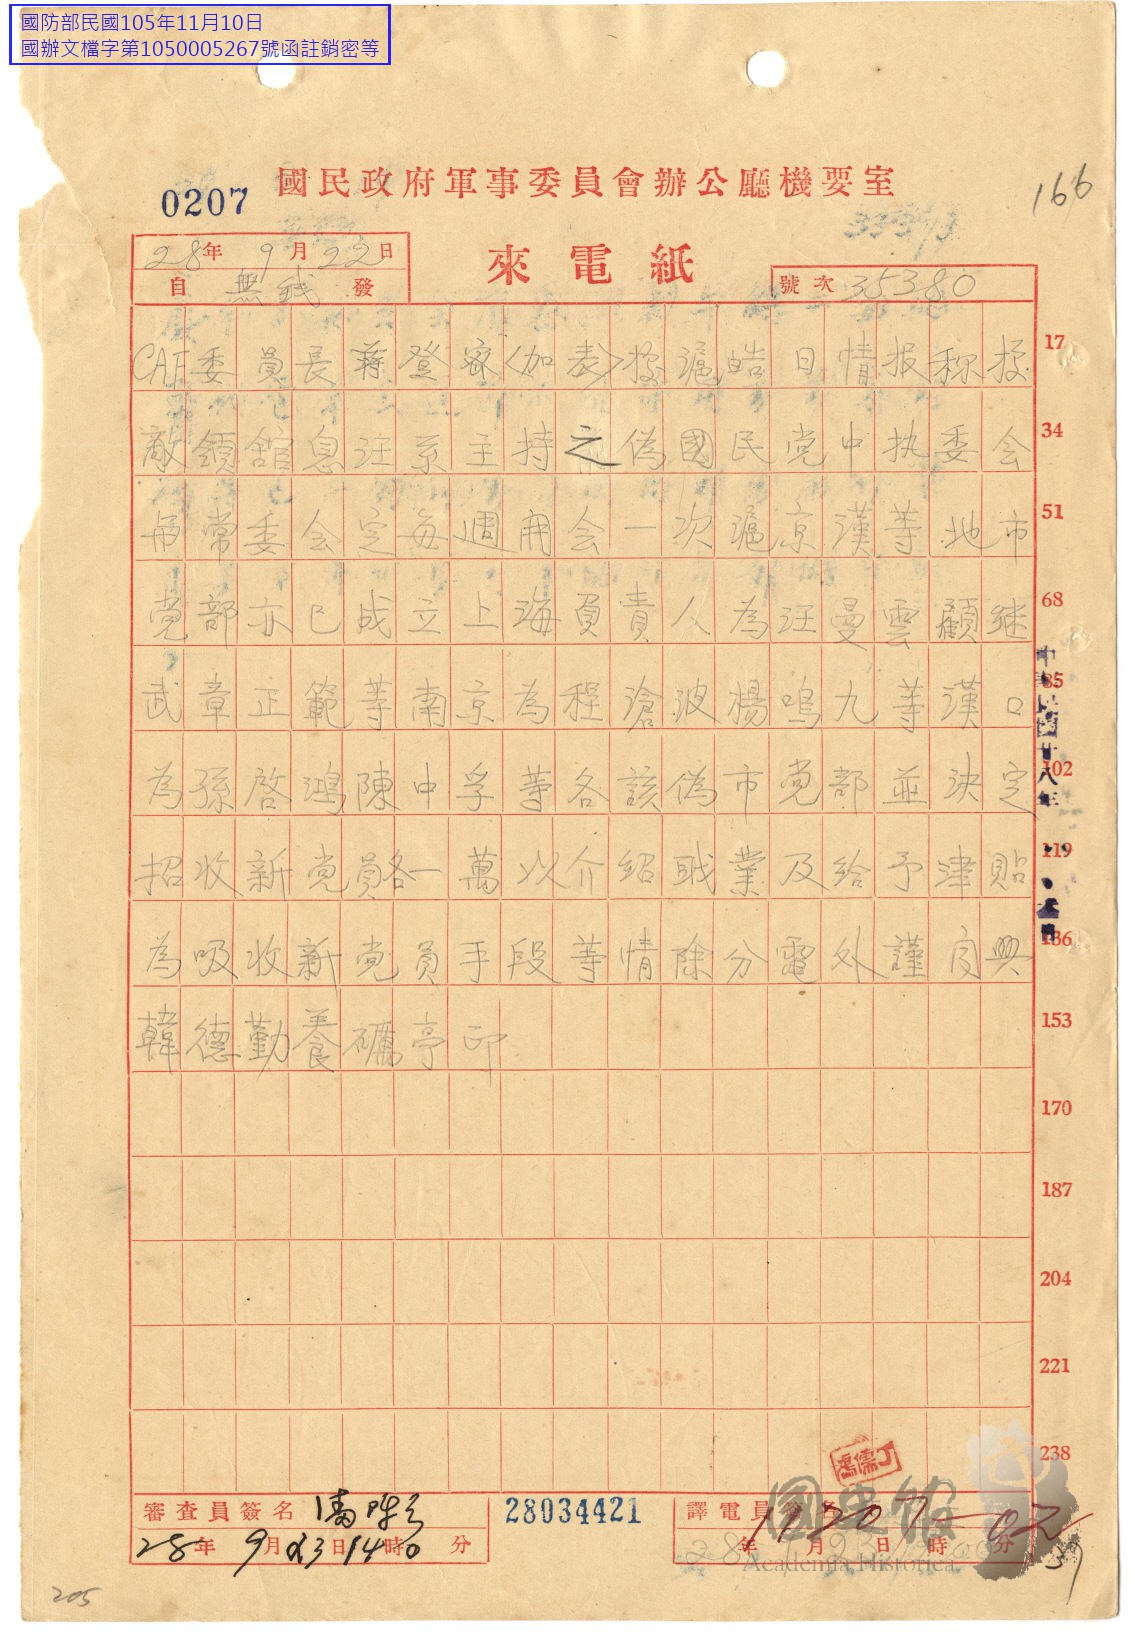 國防部民國105年11月10日
國辦文檔字第1050005267號函註銷密等
國民政府軍事委員會辦公廳機要室
0207
166
28年9月22日
來電紙
自 無錢 發
號次 35380
CAF委員長蔣登密〈加表〉據滬皓日情报称按 17
敵領館息汪系主持之偽國民党中执委会 34
常委会定每週開会一次滬京漢等地市 51
党部亦已成立上海負責人為汪曼雲顧继 68
武章正範等南京為程滄波楊鳴九等漢口 85
為孫啓鴻陳中孚等各該偽市党部並決定 102
招收新党員各一萬以介紹職業及給予津貼 119
為吸收新党員手段等情除分電外謹 與 136
韓德勤養礪亭印 153
170
187
204
221
238
中華民國廿八年
審查員簽名
28年9月23日14時0分
28034421
譯電員簽名
年 月 日 時 分
國史館
Academia Historica
205